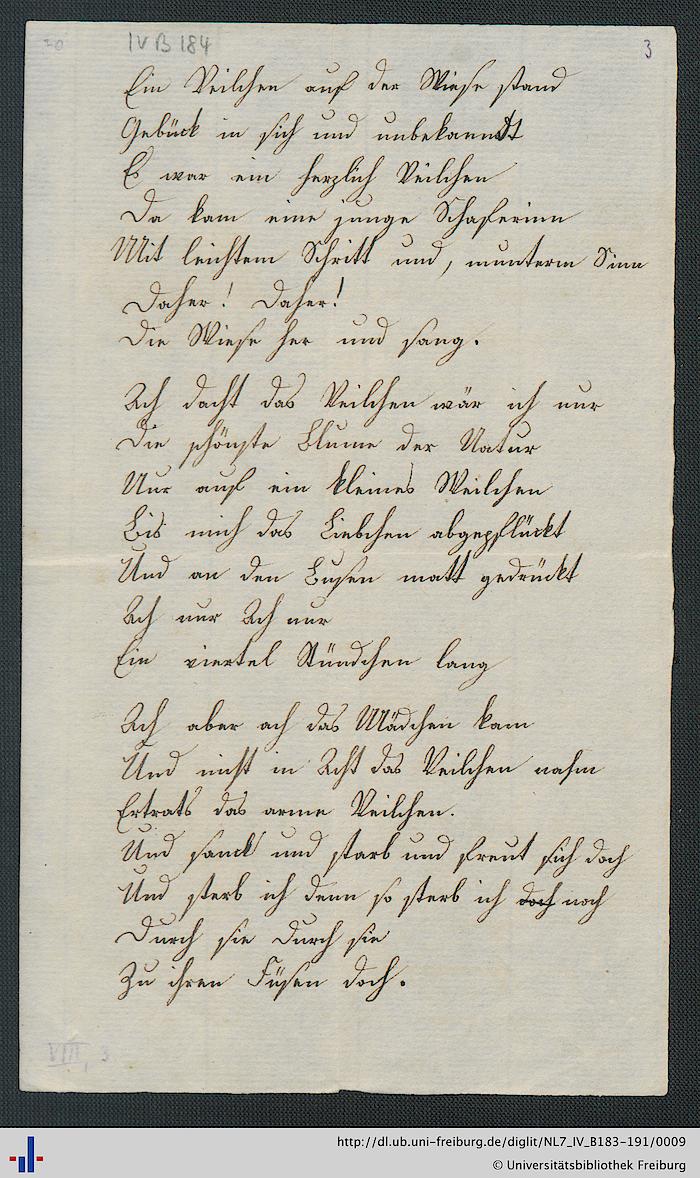 20
IV B 184
3
Ein Veilchen auf der Wiese stand
Gebück in sich und unbekanndt
Es war ein herzlich Veilchen
Da kam eine junge Schäferinn
Mit leichtem Schritt und, munterm Sinn
Daher! Daher!
Die Wiese her und sang.
Ach dacht das Veilchen wär ich nur
Die schönste Blume der Natur
Nur auf ein kleines Weilchen
Bis mich das Liebchen abgepflückt
Und an den Busen matt gedrückt
Ach nur Ach nur
Ein viertel Stündchen lang
Ach aber ach das Mädchen kam
Und nicht in Acht das Veilchen nahm
Ertrats das arme Veilchen.
Und sanck und starb und freut sich doch
Und sterb ich denn so sterb ich doch noch
Durch sie Durch sie
Zu ihren Füsen doch.
VIII, 3
http://dl.ub.uni-freiburg.de/diglit/NL7_IV_B183-191/0009
© Universitätsbibliothek Freiburg